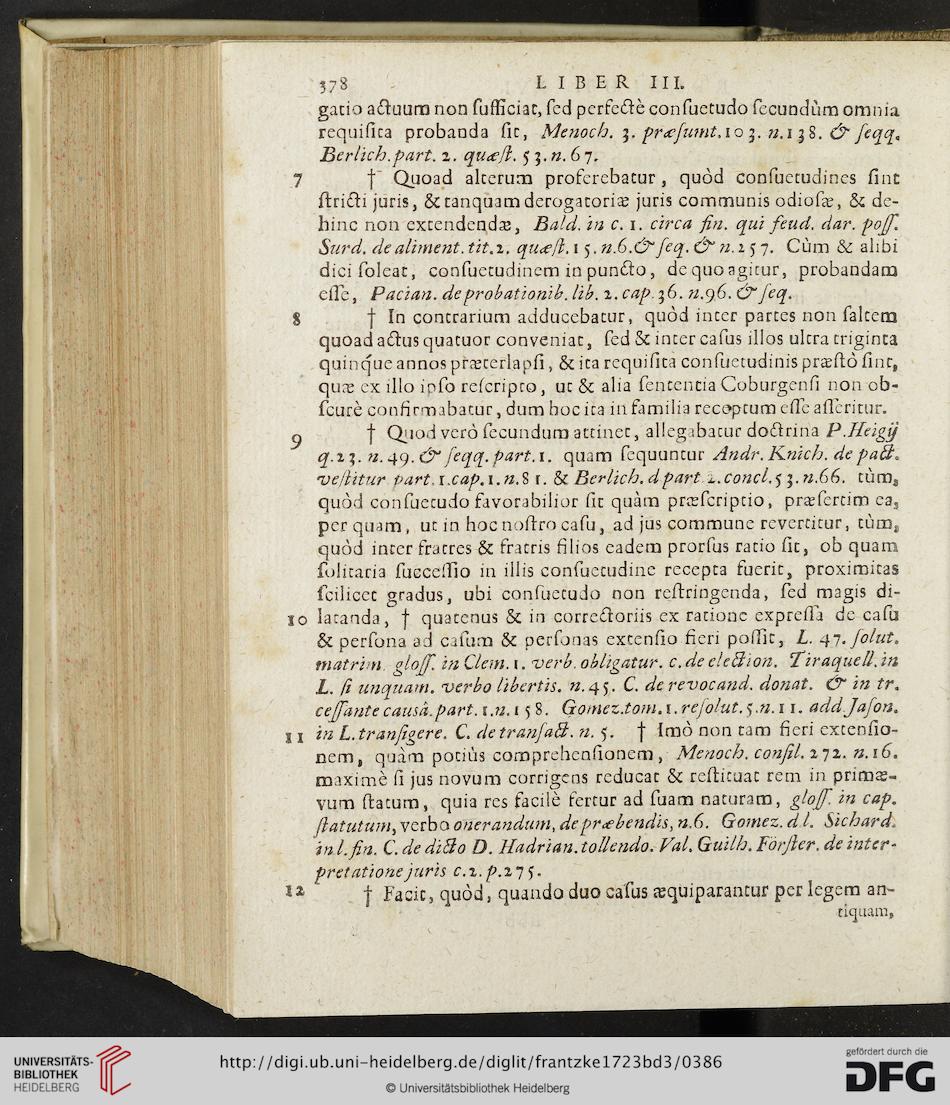 378 LIBER III.
gatio actuum non ſufficiat, ſed perfectè conſuetudo ſecundùm omnia
requiſita probanda ſit, Menoch. 3. præſumt. 103. n. 138. & ſeqq.
Berlich. part. 2. quæſt. 53. n. 67.
7 † Quoad alterum proferebatur, quòd conſuetudines ſint
ſtricti juris, & tanquam derogatoriæ juris communis odioſæ, & de-
hinc non extendendæ, Bald. in c. 1. circa fin. qui feud. dar. poſſ.
Surd. de aliment. tit. 2. quæſt. 15. n. 6. & ſeq. & n. 257. Cùm & alibi
dici ſoleat, conſuetudinem in puncto, de quo agitur, probandam
eſſe, Pacian. de probationib. lib. 2. cap. 36. n. 96. & ſeq.
8 † In contrarium adducebatur, quòd inter partes non ſaltem
quoad actus quatuor conveniat, ſed & inter caſus illos ultra triginta
quinque annos præterlapſi, & ita requiſita conſuetudinis præſtò ſint,
quæ ex illo ipſo reſcripto, ut & alia ſententia Coburgenſi non ob-
ſcurè confirmabatur, dum hoc ita in familia receptum eſſe aſſeritur.
9 † Quod verò ſecundum attinet, allegabatur doctrina P. Heigij
q. 23. n. 49. & ſeqq. part. 1. quam ſequuntur Andr. Knich. de pact.
veſtitur part. 1. cap. 1. n. 81. & Berlich. d part 2. concl. 53. n. 66. tùm,
quòd conſuetudo favorabilior ſit quàm præſcriptio, præſertim ea,
per quam, ut in hoc noſtro caſu, ad jus commune revertitur, tùm,
quòd inter fratres & fratris filios eadem prorſus ratio ſit, ob quam
ſolitaria ſucceſſio in illis conſuetudine recepta fuerit, proximitas
ſcilicet gradus, ubi conſuetudo non reſtringenda, ſed magis di-
10 latanda, † quatenus & in correctoriis ex ratione expreſſa de caſu
& perſona ad caſum & perſonas extenſio fieri poſſit, L. 47. ſolut.
matrim. gloſſ. in Clem. 1. verb. obligatur. c. de election. Tiraquell. in
L. ſi unquam. verbo libertis. n. 45. C. de revocand. donat. & in tr.
ceſſante causâ. part. 1. n. 158. Gomez. tom. 1. reſolut. 5. n. 11. add. Jaſon.
11 in L. tranſigere. C. de tranſact. n. 5. † Imò non tam fieri extenſio-
nem, quàm potiùs comprehenſionem, Menoch. conſil. 272. n. 16.
maximè ſi jus novum corrigens reducat & reſtituat rem in primæ-
vum ſtatum, quia res facilè fertur ad ſuam naturam, gloſſ. in cap.
ſtatutum, verbo onerandum, de præbendis, n. 6. Gomez. d l. Sichard.
in l. fin. C. de dicto D. Hadrian. tollendo. Val. Guilh. Förſter. de inter-
pretatione juris c. 2. p. 275.
12 † Facit, quòd, quando duo caſus æquiparantur per legem an-
tiquam,
UNIVERSITÄTS-
BIBLIOTHEK
HEIDELBERG
http://digi.ub.uni-heidelberg.de/diglit/frantzke1723bd3/0386
© Universitätsbibliothek Heidelberg
gefördert durch die
DFG